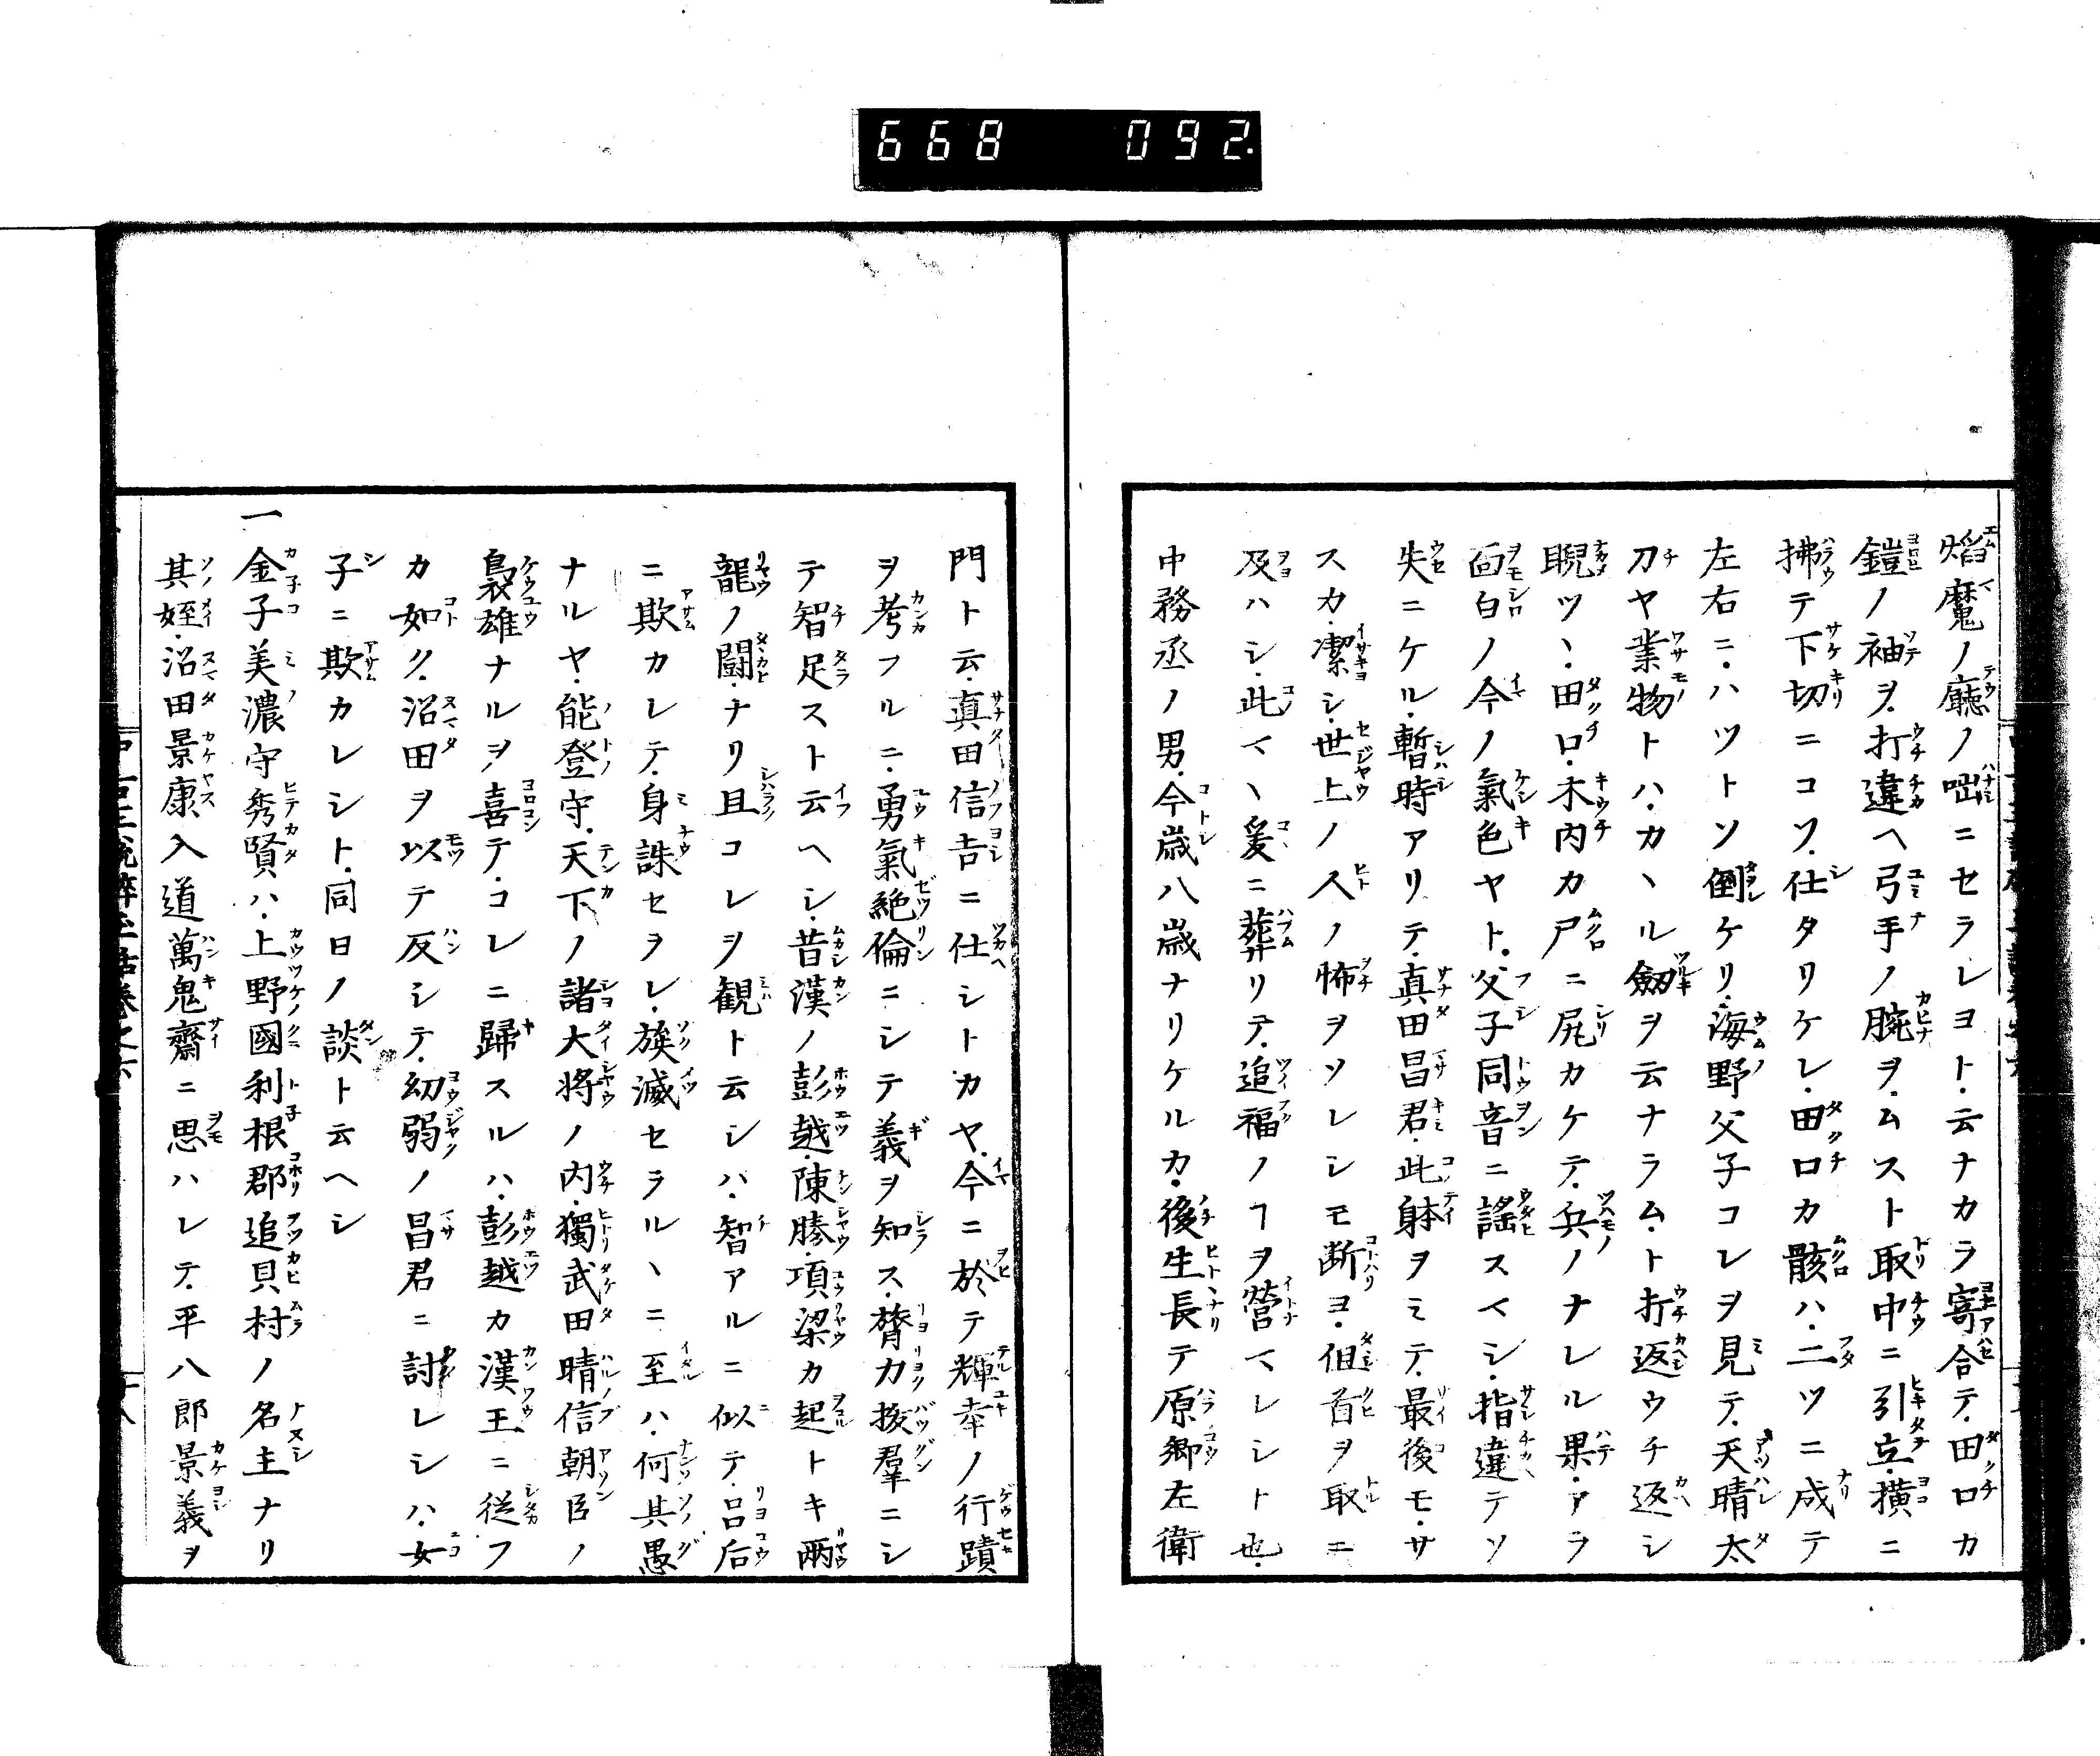 668 092.
焔魔ノ廳ノ咄ニセラレヨト云ナカラ寄合テ田口カ
鎧ノ袖ヲ打違ヘ弓手ノ腕ヲムスト取中ニ引立横ニ
拂テ下切ニコソ仕タリケレ田口カ骸ハ二ツニ成テ
左右ニハツトソ倒ケリ海野父子コレヲ見テ天晴太
刀ヤ業物トハカヽル劔ヲ云ナラムト打返ウチ返シ
睨ツヽ田口木内カ尸ニ尻カケテ兵ノナレル果アラ
面白ノ今ノ氣色ヤト父子同音ニ謡スマシ指違テソ
失ニケル暫時アリテ真田昌君此躰ヲミテ最後モサ
スカ潔シ世上ノ人ノ怖ヲソレシモ断ヨ但首ヲ取ニ
及ハシ此マヽ爰ニ葬リテ追福ノヿヲ營マレシト也
中務丞ノ男今歳八歳ナリケルカ後生長テ原郷左衛
門ト云真田信吉ニ仕シトカヤ今ニ於テ輝幸ノ行蹟
ヲ考フルニ勇氣絶倫ニシテ義ヲ知ス膂力抜羣ニシ
テ智足スト云ヘシ昔漢ノ彭越陳勝項梁カ起トキ兩
龍ノ闘ナリ且コレヲ観ト云シハ智アルニ似テ呂后
ニ欺カレテ身誅セヲレ族滅セラルヽニ至ハ何其愚
ナルヤ能登守天下ノ諸大将ノ内獨武田晴信朝臣ノ
梟雄ナルヲ喜テコレニ歸スルハ彭越カ漢王ニ従フ
カ如ク沼田ヲ以テ反シテ幼弱ノ昌君ニ討レシハ女
子ニ欺カレシト同日ノ談ト云ヘシ
一金子美濃守秀賢ハ上野國利根郡追貝村ノ名主ナリ
其姪沼田景康入道萬鬼齋ニ思ハレテ平八郎景義ヲ